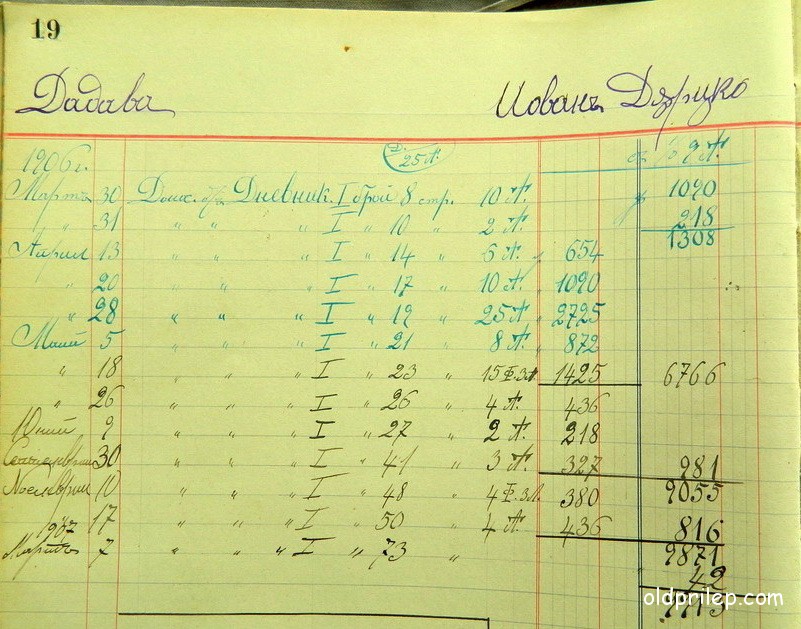 19
Дадава Иованъ
25 Л.
1906 г. 109 Л.
Мартъ 30 Дневник. I брой 8 стр. 10 Л. 1090
" 31 " " " I " 10 " 2 Л. 218
1308
Април 13 " " " I " 14 " 6 Л. 654
" 20 " " " I " 17 " 10 Л. 1090
" 28 " " " I " 19 " 25 Л. 2725
Маий 5 " " " I " 21 " 8 Л. 872
" 18 " " " I " 23 " 15 1425 6766
" 26 " " " I " 26 " 4 Л. 436
Юний 9 " " " I " 27 " 2 Л. 218
30 " " " I " 41 " 3 Л. 327 981
Ноемврий 10 " " " I " 48 " 4 380 9055
" 17 " " " I " 50 " 4 Л. 436 816
1907
Мартъ 7 " " " I " 73 " 9871
42
oldprilep.com